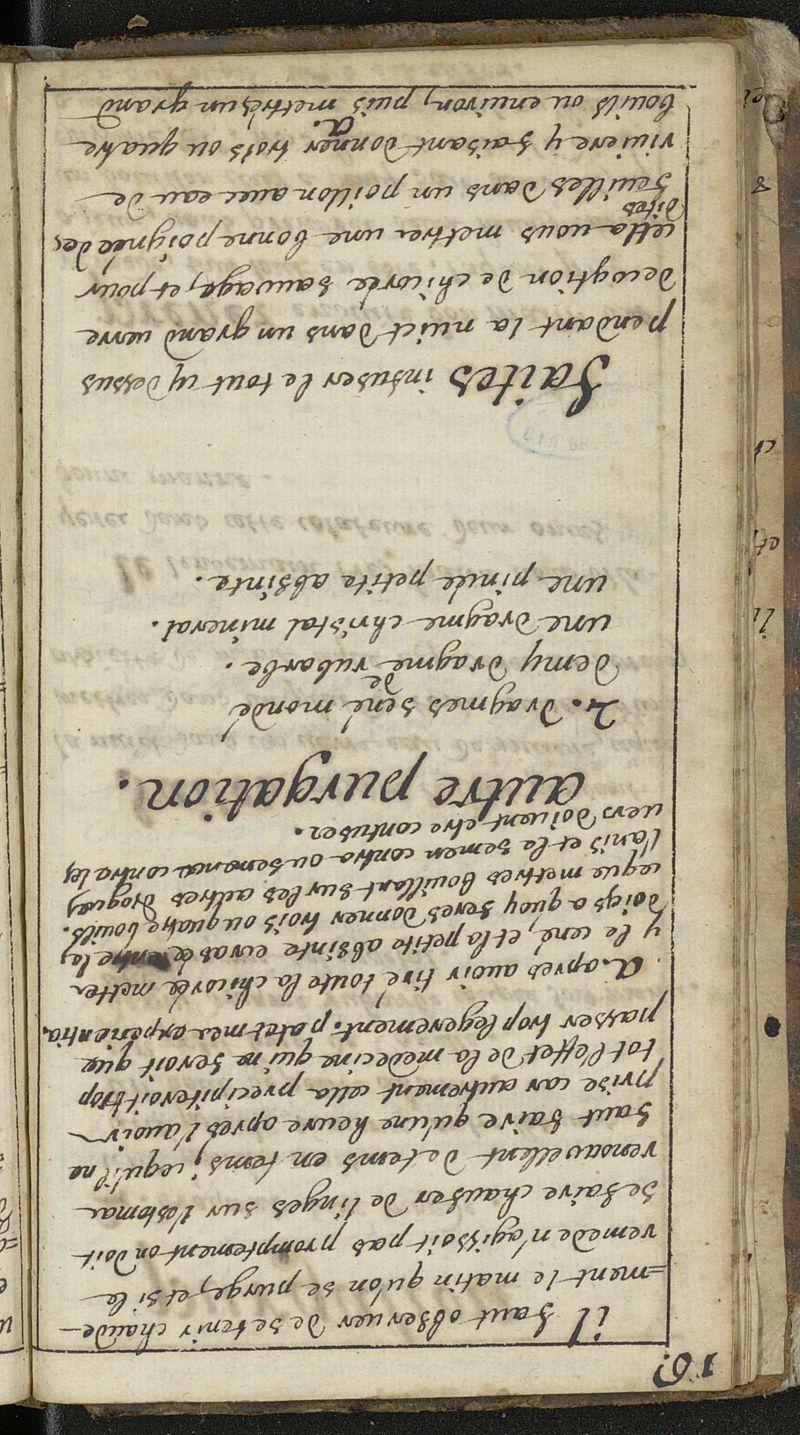 16.
il faut observer de se tenir chaude-
=ment le matin qu'on se purge, et si le
remede n'agissoit pas promptement on doit
se faire chaufer de linges sur l'estomac
renouvellent de tems en tems; ce qu'il ne
faut faire qu'une heure apres l'avoir
prise car autrement cella precipiteroit trop
tot l'effet de la medecine qui ne feroit que
passer trop legerement. patet mea experientia.
a. apres avoir tiré toute la chicorée metter
y le cené, et la petite absinte environ entre les
doigs a quoy feres donner trois ou quatre bouils.
ce que mettres bouillant sur les autres drogues,
l'anis et le semen contra ou semence contra les
vers doivent etre contuser.
autre purgation.
2. dragmes sené mondé
demy dragme de rubarbe.
une dragme christal mineral.
une pincée petite absinte.
faites infuser le tout cy dessus
pendant la nuict dans un grand verre
decoction de chicorée sauvage, et pour
cella vous mettres une bonne poignée des
dites
feuilles dans un poillon avec eau de
riviere y faisant donner trois ou quatre
a.
bouils ou environ, puis mettres un grand